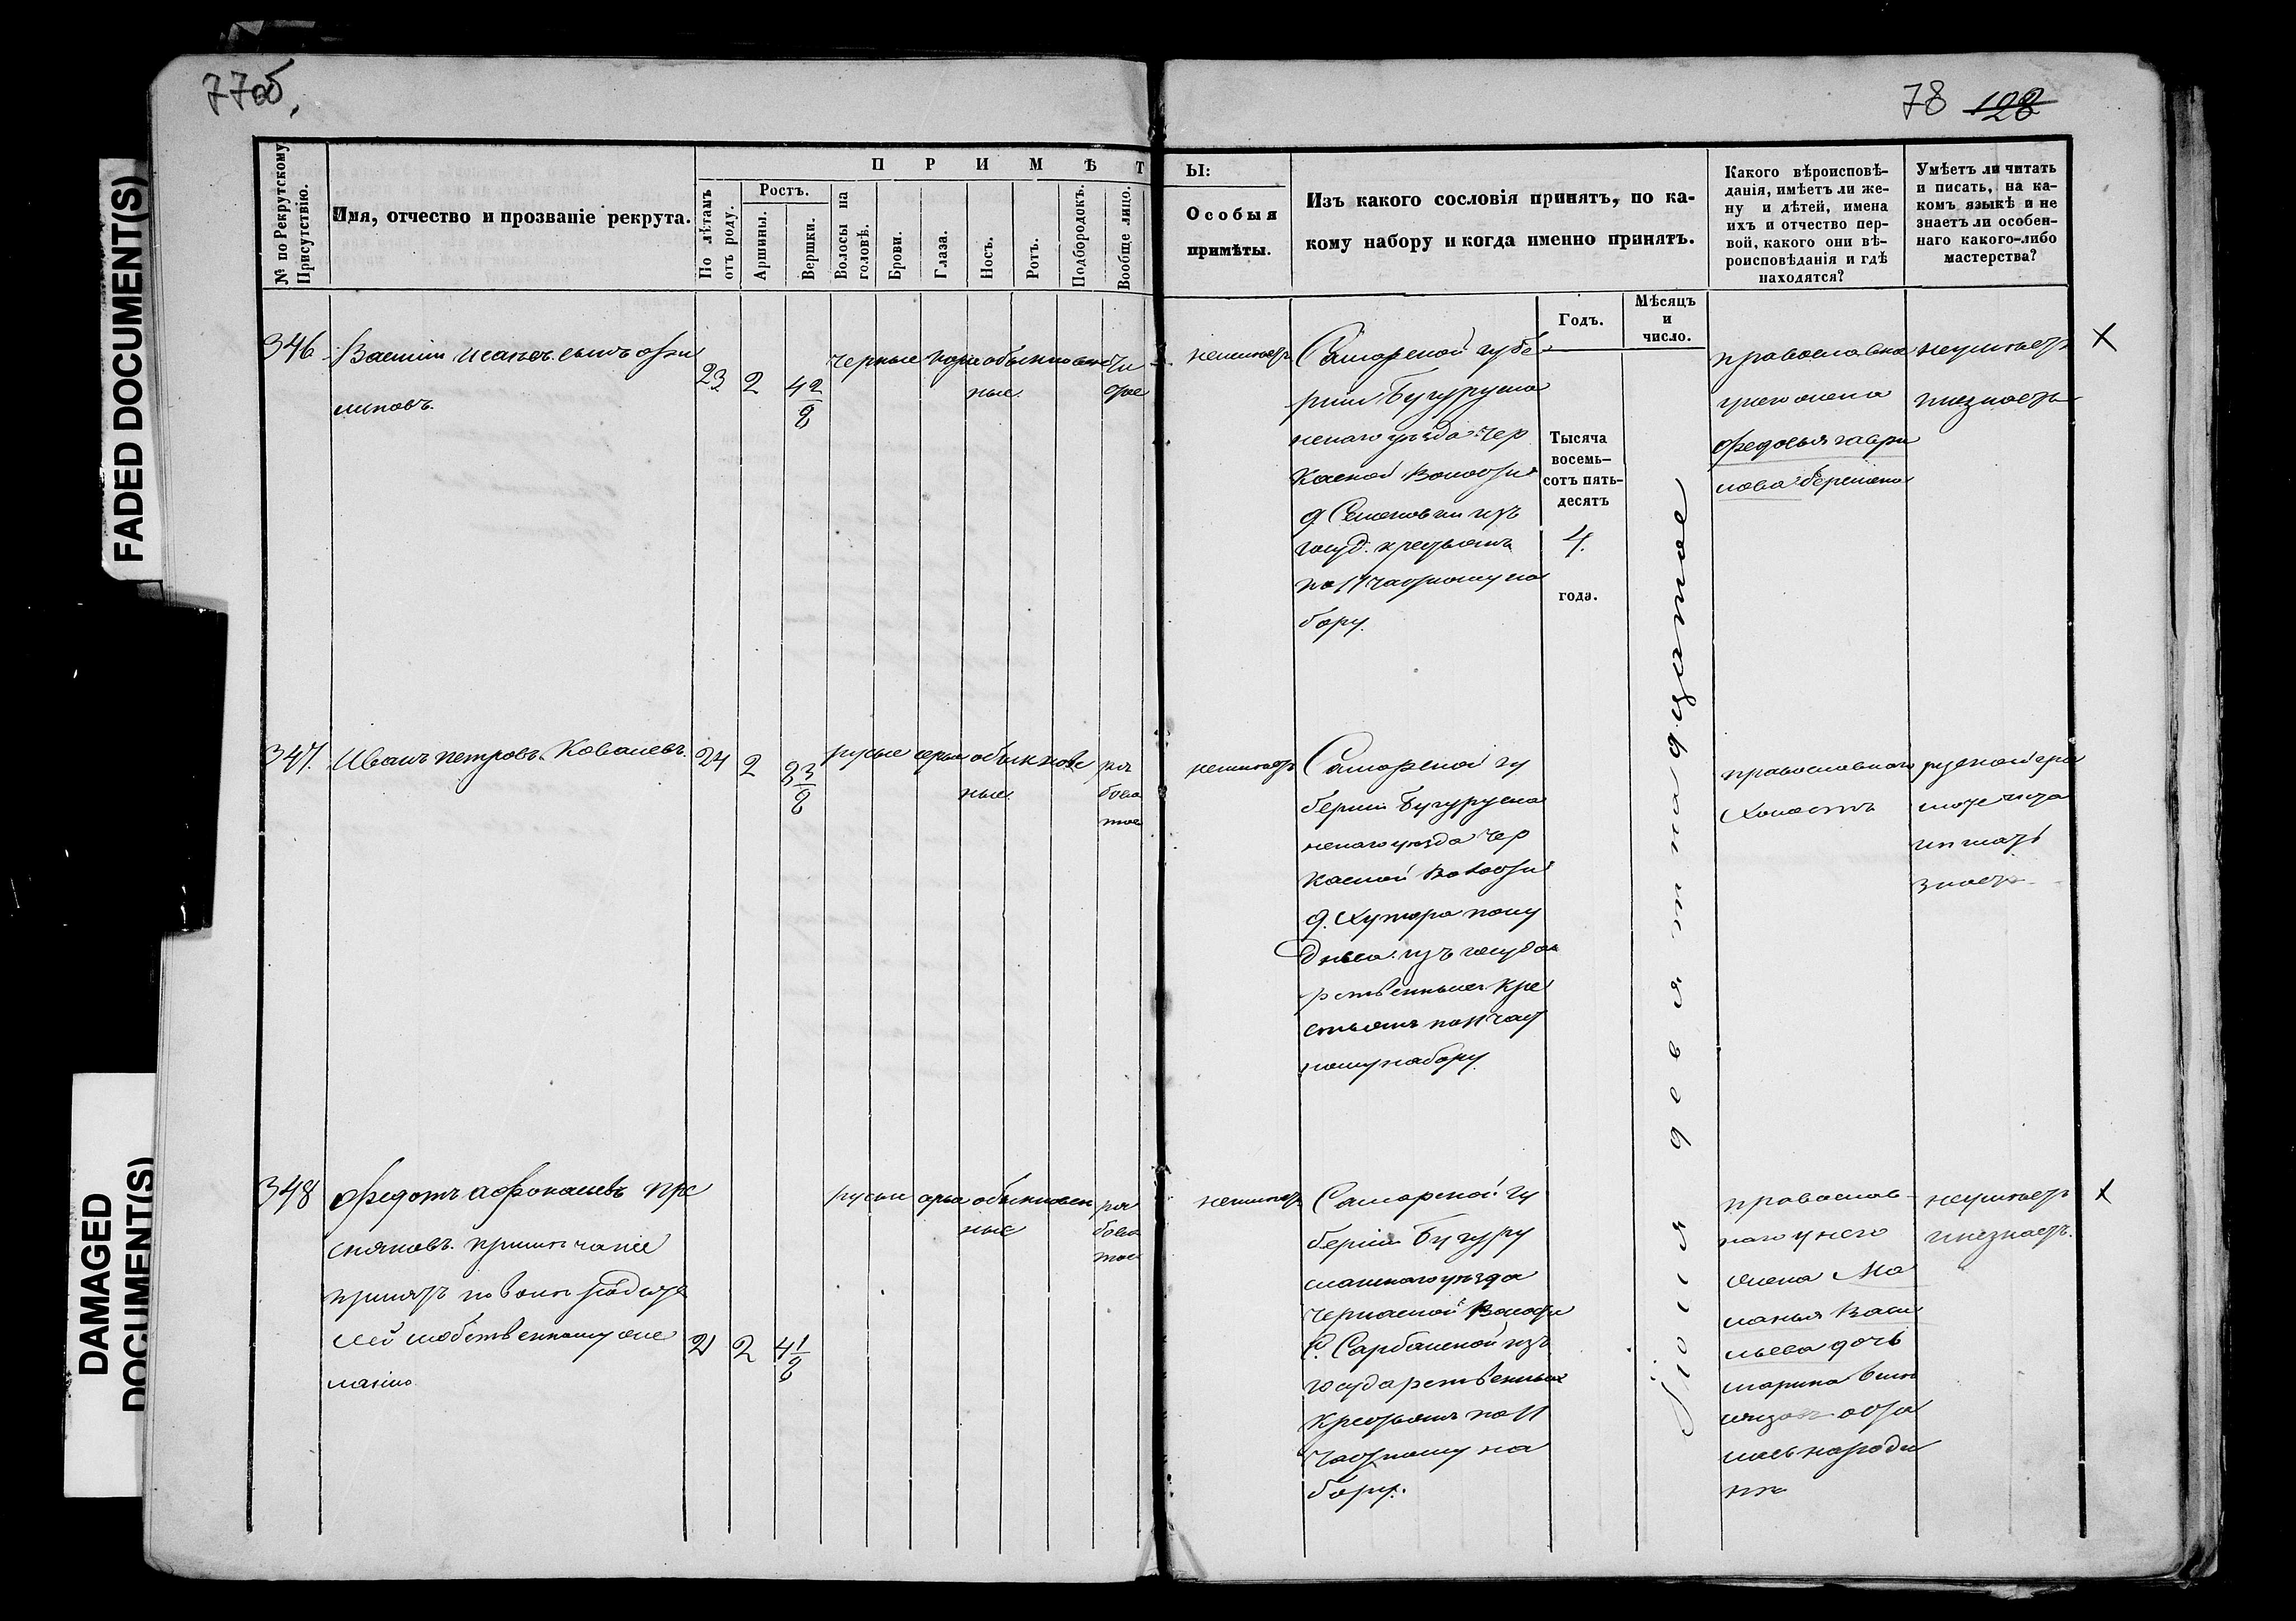 77об.
78 128
FADED DOCUMENT(S)
DAMAGED
DOCUMENT(S)
№ по Рекрутскому
Присутствію.
Имя, отчество и прозваніе рекрута.
П Р И М Ѣ Т
По лѣтамъ
отъ роду.
Ростъ.
Аршины.
Вершки.
Волосы на
головѣ.
Брови.
Глаза.
Носъ.
Ротъ.
Подбородокъ.
Вообще лицо.
Ы:
Особыя
примѣты.
Изъ какого сословія принятъ, по ка-
кому набору и когда именно принятъ.
Какого вѣроисповѣ-
данія, имѣетъ ли же-
ну и дѣтей, имена
ихъ и отчество пер-
вой, какого они вѣ-
роисповѣданія и гдѣ
находятся?
Умѣетъ ли читать
и писать, на ка-
комъ языкѣ и не
знаетъ ли особен-
наго какого-либо
мастерства?
Годъ.
Мѣсяцъ
и
число.
Тысяча
восемь-
сотъ пять-
десятъ
4.
года.
іюня девятнадцатое
346
23 2 4 2/8
черные обыкновен
ные
чи
стое
неимѣетъ
Самарской губе
рніи Бугурусла
нскаго уѣзда Чер
каской волости
д. Семеновки изъ
госуд. крестьянъ
по 11 частному на
бору.
православна
у него жена
Федосья Гаври
лова беремена
неумѣетъ
инезнаетъ
X
347.
Иванъ Петровъ Ковалевъ.
24 2 2 3/8
русые серые обыкнове
ные.
ря
бова
тое
неимѣетъ
Самарской гу
берніи Бугурусла
нскаго уѣзда Чер
каской волости
д. Хутора
изъ государ
рственныхъ кре
стьянъ по 11 част
ному набору.
православнаго
холостъ
руской гра
мотѣ чита
и писать
знаетъ
348
Федотъ Афонасьевъ Пре
сняковъ. примѣчаніе
принятъ по волѣ родите
лей собственному же
ланію.
21 2 4 1/8
русые серые обыкновен
ные
ря
бова
тое
неимѣетъ
Самарской гу
берніи Бугуру
сланскаго уѣзда
Черкаской волости
с. Сарбайской изъ
государственныхъ
крестьянъ по 11
частному на
бору.
православ
наго у него
жена Ма
ланья Васи
льева дочь
Марина
оста
лась народи
нѣ
неумѣетъ
инезнаетъ.
X